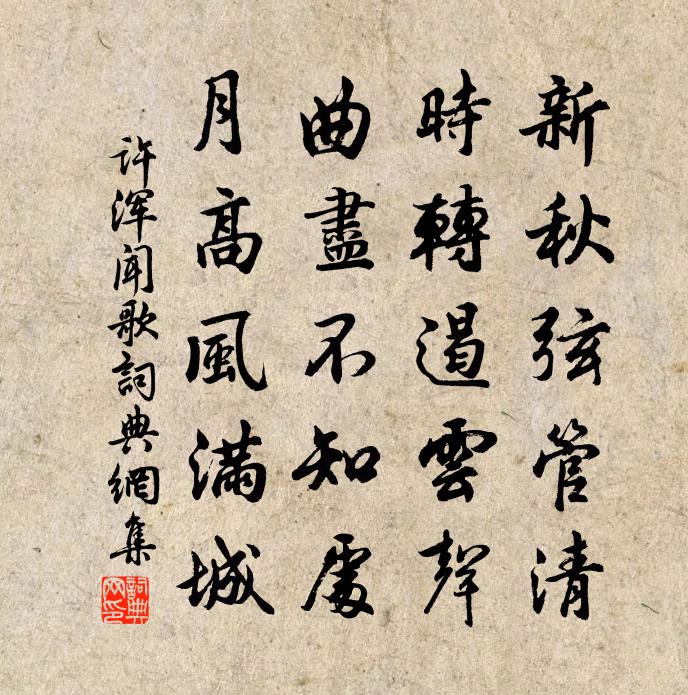 新秋弦管清
時轉遏雲聲
曲盡不知處
月高風滿城
许浑聞歌詞典網集
詞典
网印